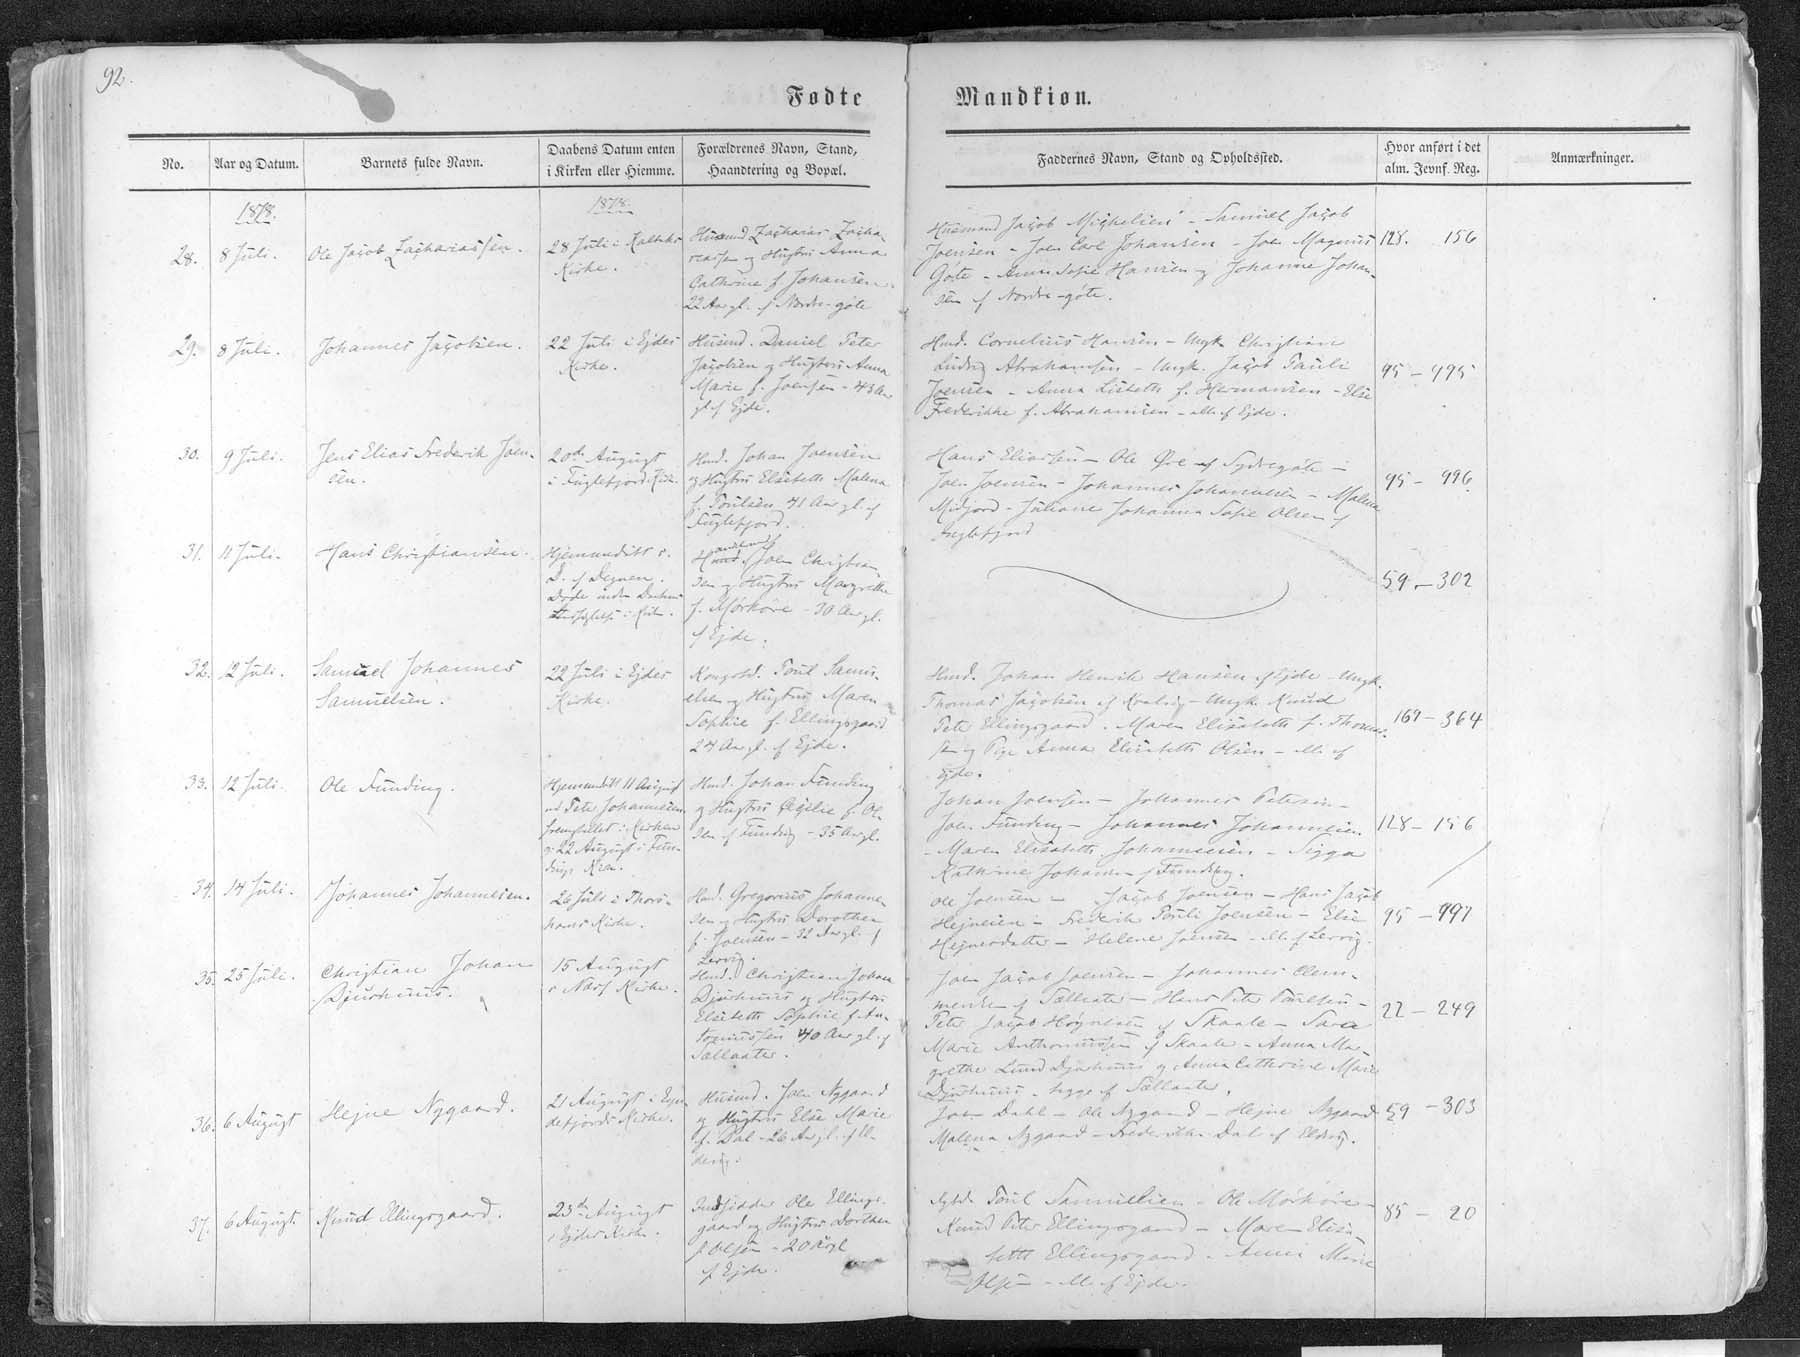 92.
Fødte Mandkiøn.
No.
Aar og Datum.
Barnets fulde Navn.
Daabens Datum enten
i Kirken eller Hiemme.
Forældrenes Navn, Stand,
Haandtering og Bopæl.
Faddernes Navn, Stand og Opholdssted.
Hvor anført i det
alm. Jevnf. Reg.
Anmærkninger.
1878.
1878.
28.
8 Juli.
Ole Jacob Zachariassen.
28 Juli i
Kirke.
Husmand Zacharias Zacha-
riassen og Hustru Anna
Cathrine f. Johansen.
22 Aar gl. af Nordre-göte
Husmand Jacob Michelsen - Samuel Jacob
Joensen - Joen Carl Johansen - Joen Magnus
Göte - Anna Sofie Hansen og Johanne Johan-
sen af Nordre-göte.
128. 156
29.
8 Juli.
Johannes Jacobsen.
22 Juli i Ejdes
Kirke.
Husmd. Daniel Peter
Jacobsen og Hustru Anna
Marie f. Joensen - 43 Aar
gl. af Ejde.
Hmd. Cornelius Hansen - Ungk. Christian
Ludvig Abrahamsen - Ungk. Jacob Pauli
Joensen - Anna Lisbeth f. Hermansen - Else
Frederikke f. Abrahamsen - alle af Ejde.
95 - 995
30.
9 Juli.
Jens Elias Frederik Joen-
sen.
20de August
i Fuglefjord Kirke.
Hmd. Johan Joensen
og Hustru Elsebeth Malena
f. Poulsen 41 Aar gl. af
Fuglefjord.
Hans Eliassen - Ole Öre af Sydregöte -
Joen Joensen - Johannes Johannesen - Malena
Midjord - Juliane Johanna Sofie Olsen af
Fuglefjord
95 - 996
31.
11 Juli.
Hans Christiansen.
Hjemmedöbt
D. af Degnen.
Döde inden
i Kirken.
Joen Christian-
sen og Hustru Margrethe
f. Mörköre - 30 Aar gl.
af Ejde.
59 - 302
32.
12 Juli.
Samuel Johannes
Samuelsen.
22 Juli i Ejdes
Kirke.
Kongsbd. Poul Samu-
elsen og Hustru Maren
Sophie f. Ellingsgaard
24 Aar gl. af Ejde.
Hmd. Johan Henrik Hansen af Ejde - Ungk.
Thomas Jacobsen af Kvalvig - Ungk. Knud
Peter Ellingsgaard - Maren Elisabeth f. Thomas-
sen og Pige Anna Elisabeth Olsen - alle af
Ejde.
169 - 364
33.
12 Juli.
Ole Funding.
Hjemmedöbt 11 August
ved Peter Johannesen
fremstillet i Kirken
22 August i Fun-
dings Kirke.
Hmd. Johan Funding
og Hustru Cecilie f. Ol-
sen af Funding - 35 Aar gl.
Johan Joensen - Johannes Petersen -
Joen Funding - Johannes Johannesen
- Maren Elisabeth Johannesen - Sigga
Kathrine Johansen af Funding.
128 - 156
34.
14 Juli.
Johannes Johannesen.
26 Juli i Thors-
havns Kirke.
Hmd. Gregorius Johanne-
sen og Hustru Dorothea
f. Joensen - 32 Aar gl. af
Lervig.
Ole Joensen - Jacob Joensen - Hans Jacob
Hejnesen - Frederik Pouli Joensen - Else
Hejnesdatter - Helene Joensen - alle af Lervig.
95 - 997
35.
25 Juli.
Christian Johan
Djurhuus.
15 August
i Næs Kirke.
Hmd. Christian Johan
Djurhuus og Hustru
Elsebeth Sophie f. An-
toniussen 40 Aar gl. af
Sællaater.
Joen Jacob Joensen - Johannes Clem-
mensen af Sællaater - Hans Peter Poulsen -
Peter Jacob Högnesen af Skaale - Sara
Marie Anthoniussen af Skaale - Anna Ma-
grethe Lund Djurhuus og Anna Cathrine Marie
Djurhuus - begge af Sællaater.
22 - 249
36.
6 August
Hejne Nygaard.
21 August i Fun-
defjords Kirke.
Husmd. Joen Nygaard
og Hustru Else Marie
f. Dal - 26 Aar gl. af El-
devig.
Joen Dahl - Ole Nygaard - Hejne Nygaard
Malena Nygaard - Frederikke Dal af Eldevig.
59 - 303
37.
6 August.
Knud Ellingsgaard.
23de August
i Ejdes Kirke.
Indsidder Ole Ellings-
gaard og Hustru Dorthea
f. Olsen - 20 Aar gl
af Ejde.
Poul Samuelsen - Ole Mörköre -
Knud Peter Ellingsgaard - Maren Elisa-
beth Ellingsgaard - Anna Marie
Olsen - alle af Ejde.
85 - 20